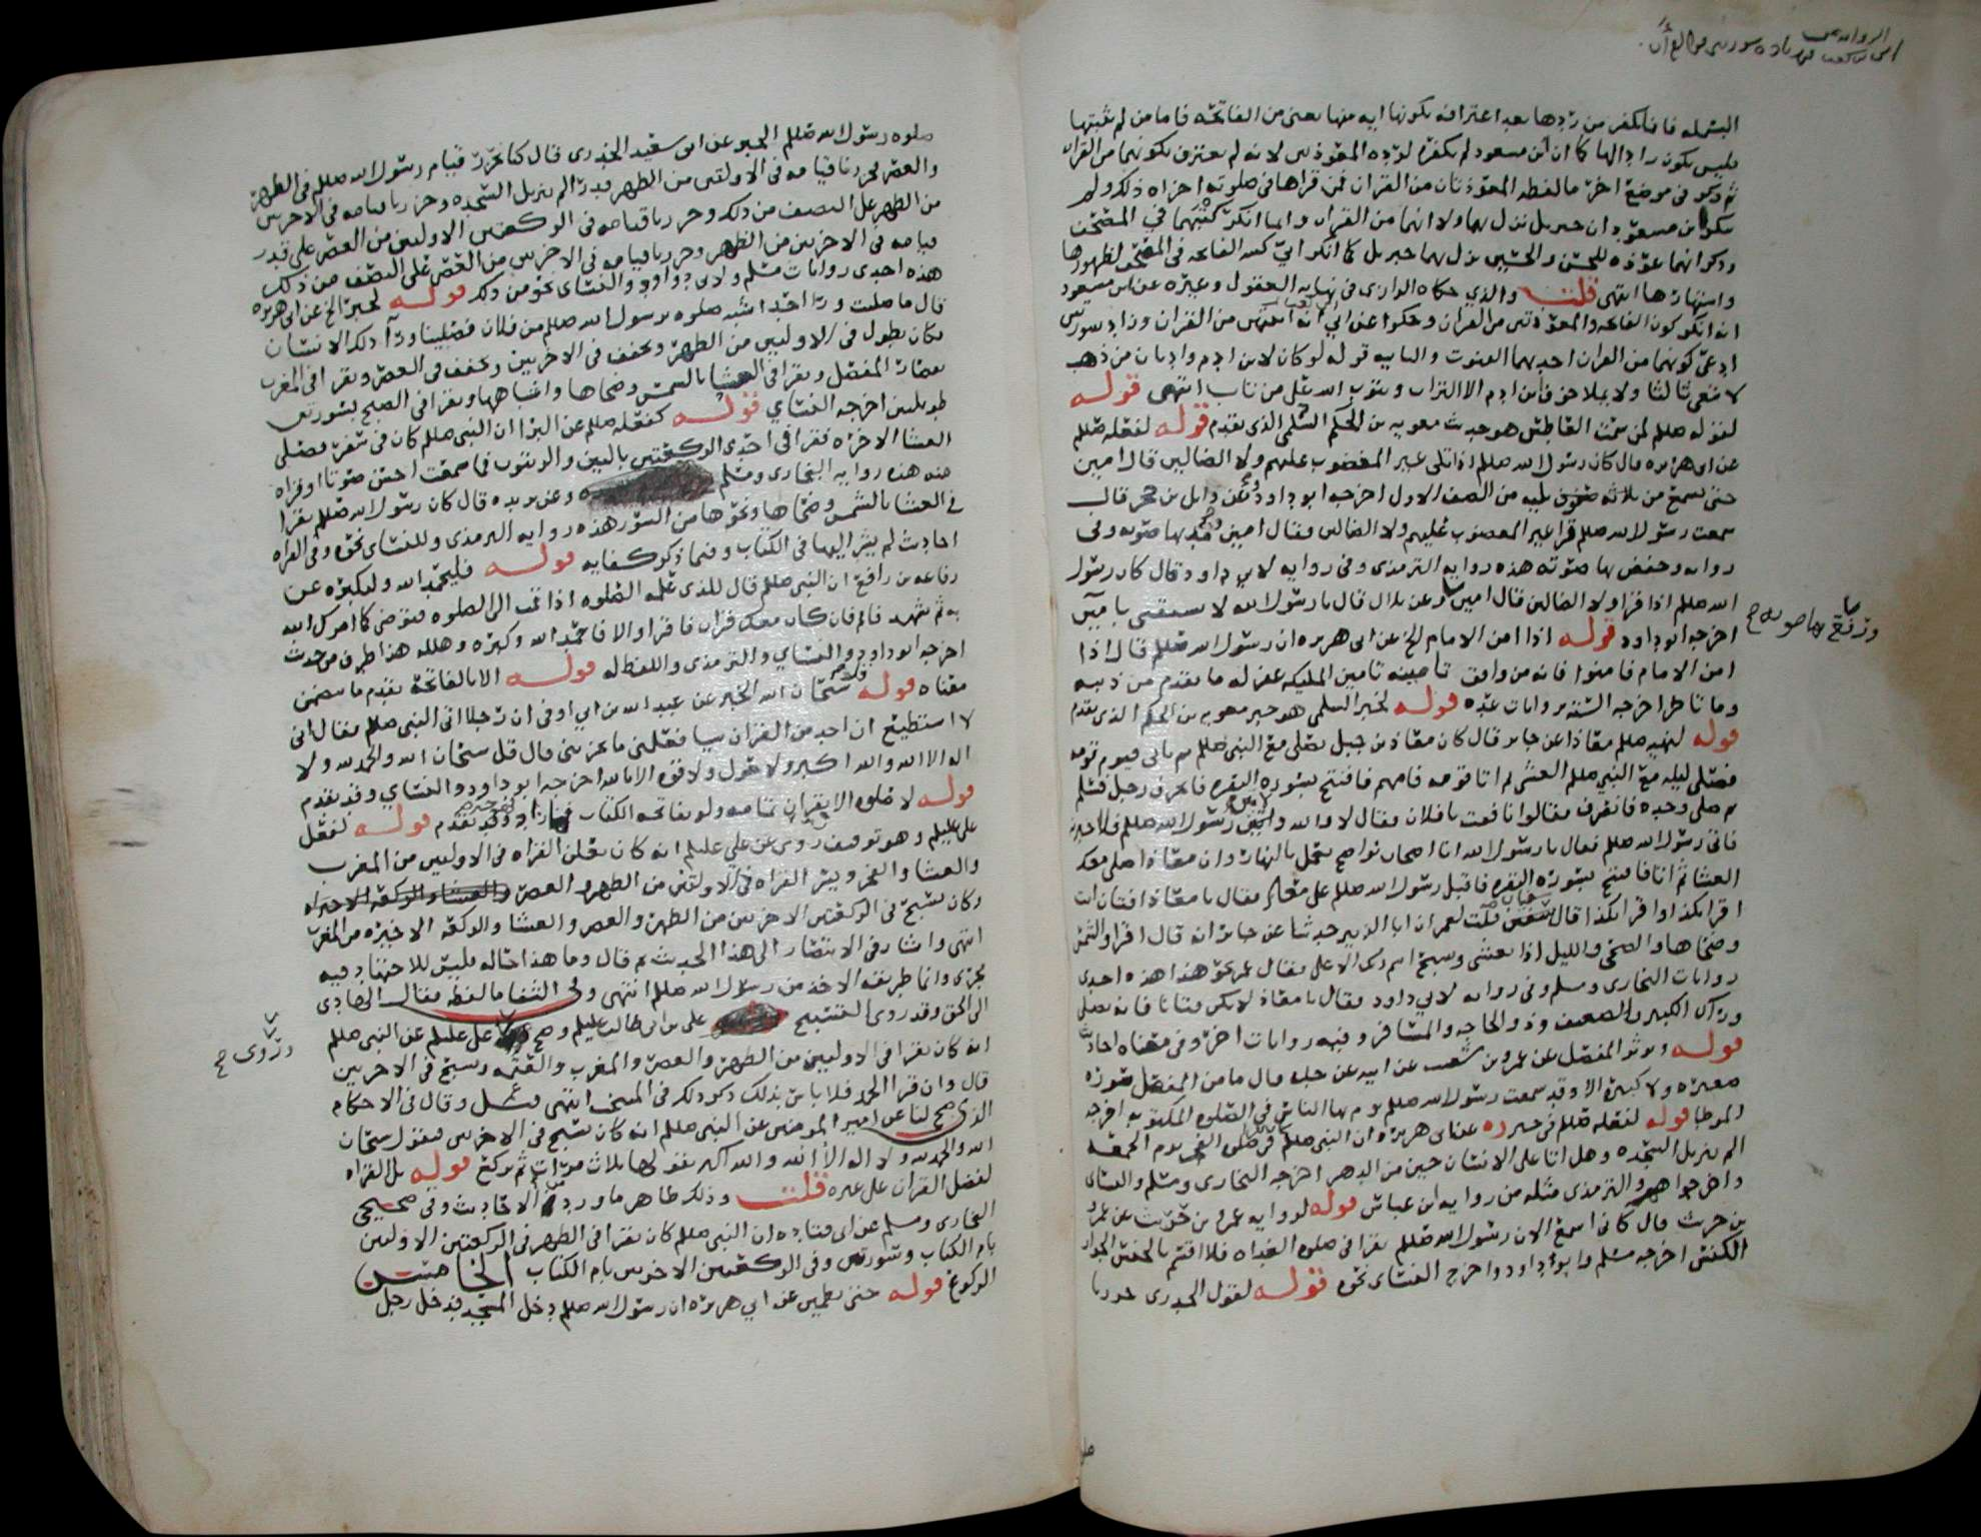 الروايه عن
ابي بن كعب في زياده سورتين في القرأن
البسمله فانما يكفر من ردها بعد اعترافه بكونها ايه منها يعني من الفاتحه فاما من لم يثبتها
فليس يكون رادا لها كما ان ابن مسعود لم يكفره لرده المعوذتين لانه لم يعترف بكونهما من القران
ثم ذكر في موضع اخر ما لفظه المعوذتان من القران فمن قراها في صلوته اجزاه ذلك ولم
ينكر ابن مسعود ان جبريل نزل بهما ولا انهما من القران وانما انكر كتبهما في المصحف
وذكر انهما عوذه للحسن والحسين نزل بهما جبريل كما انكر ابي كتبه الفاتحه في المصحف لظهورها
واشتهارها انتهى قلت والذي حكاه الرازي في نهايه العقول وغيره عن ابن مسعود
انه انكر كون الفاتحه والمعوذتين من القران وحكوا عن ابي انه من القران وزاد سورتين
ادعى كونهما من القران احديهما القنوت والثانيه قوله لو كان لابن ادم واديان من ذهب
لابتغى ثالثا ولا يملا جوف ابن ادم الا التراب ويتوب الله على من تاب انتهى قوله
لقوله صللم لمن سمت العاطس هو حديث معويه بن الحكم السلمي الذي تقدم قوله لفعله صللم
عن ابي هريره قال كان رسول الله صللم اذا تلى غير المغضوب عليهم ولا الضالين قال امين
حتى يسمع من يليه من الصف الاول اخرجه ابو داود وعن وايل بن حجر قال
سمعت رسول الله صللم قرا غير المغضوب عليهم ولا الضالين وقال امين ومد بها صوته وفي
روايه وخفض بها صوته هذه روايه الترمذي وفي روايه لابي داود قال كان رسول
الله صللم اذا قرا ولا الضالين قال امين وعن بلال قال يا رسول الله لا تسبقني بامين
ورفع بها صوته ح
اخرجه ابو داود قوله اذا امن الامام الخ عن ابي هريره ان رسول الله صللم قال اذا
امن الامام فامنوا فانه من وافق تامينه تامين المليكه غفر له ما تقدم من ذنبه
وما تاخر اخرجه السته بروايات عده قوله لخبر السلمي هو خبر معويه بن الحكم الذي تقدم
قوله لنهيه صللم معاذا عن جابر قال كان معاذ بن جبل يصلي مع النبي صللم ثم ياتي فيوم قومه
فصلى ليله مع النبي صللم العشى ثم اتا قومه فامهم فافتتح بسوره البقره فانحرف رجل فسلم
ثم صلى وحده فانصرف فقالوا نافقت يا فلان فقال لا والله ولاتين رسول الله صللم فلاخبرنه
فاتى رسول الله صللم فقال يا رسول الله انا اصحاب نواضح نعمل بالنهار وان معاذا صلى معك
العشا ثم اتانا فافتتح بسوره البقره فاقبل رسول الله صللم على معاذ فقال يا معاذ افتان انت
اقرا بكذا واقرا بكذا قال سفين قلت لعمر ان ابا الزبير حدثنا عن جابر انه قال اقرا والشمس
وضحاها والضحى والليل اذا يغشى وسبح اسم ربك الاعلى فقال عمر نحو هذا هذه احدى
روايات البخاري ومسلم وفي روايه لابي داود فقال يا معاذ لا تكن فتانا فانه يصلي
وراك الكبير والضعيف وذو الحاجه والمسافر وفيه روايات اخر وفي معناه احاديث
قوله ويوثر المفصل عن عمرو بن شعيب عن ابيه عن جده قال ما من المفصل سوره
صغيره ولا كبيره الا وقد سمعت رسول الله صللم يوم بها الناس في الصلوه المكتوبه اخرجه
الموطا قوله لفعله صللم في عن ابي هريره ان النبي صللم كان يقرا في صلوه الفجر يوم الجمعه
الم تنزيل السجده وهل اتا على الانسان حين من الدهر اخرجه البخاري ومسلم والنساي
واخرجوا هم والترمذي مثله من روايه ابن عباس قوله لروايه عمرو بن حريث عن عمرو
بن حريث قال كاني اسمع الان رسول الله صللم يقرا في صلوه الغداه فلا اقسم بالخنس الجوار
الكنس اخرجه مسلم وابو داود واخرج النساي نحوه قوله لقول الخدري حزرنا
صلوه رسول الله صللم الخبر عن ابي سعيد الخدري قال كنا نحزر قيام رسول الله صللم في الظهر
والعصر فحزرنا قيامه في الاولتين من الظهر قدر الم تنزيل السجده وحزرنا قيامه في الاخرتين
من الظهر على النصف من ذلك وحزرنا قيامه في الركعتين الاوليين من العصر على قدر
قيامه في الاخرتين من الظهر وحزرنا قيامه في الاخرتين من العصر على النصف من ذلك
هذه احدى روايات مسلم ولابي داود والنساي نحو من ذلك قوله لخبر الخ عن ابي هريره
قال ما صليت ورا احد اشبه صلوه برسول الله صللم من فلان فصلينا ورآ ذلك الانسان
فكان يطول في الاوليين من الظهر ويخفف في الاخريين ويخفف في العصر ويقرا في المغرب
بقصار المفصل ويقرا في العشا بالشمس وضحاها واشباهها ويقرا في الصبح بسورتين
طويلتين اخرجه النساي قوله كفعله صللم عن البرا ان النبي صللم كان في سفر فصلى
العشا الاخره فقرا في احدى الركعتين بالتين والزيتون فما سمعت احسن صوتا او قراه
منه هذه روايه البخاري ومسلم وعن بريده قال كان رسول الله صللم يقرا
في العشا بالشمس وضحاها ونحوها من السور هذه روايه الترمذي وللنساي نحوه وفي القراه
احاديث لم يشر اليها في الكتاب وفيما ذكر كفايه قوله فليحمد الله وليكبره عن
رفاعه بن رافع ان النبي صللم قال للذي علمه الصلوه اذا قمت الى الصلوه فتوضى كما امرك الله
به ثم تشهد فاقم فان كان معك قران فاقرا والا فاحمد الله وكبره وهلله هذا طرف من حديث
اخرجه ابو داود والنساي والترمذي واللفظ له قوله الا بالفاتحه تقدم ما يتضمن
معناه قوله سبحان الله الخبر عن عبد الله بن ابي اوفى ان رجلا اتى النبي صللم فقال اني
لا استطيع ان اخذ من القران شيا فعلمني ما يجزيني قال قل سبحان الله والحمد لله ولا
اله الا الله والله اكبر ولا حول ولا قوه الا بالله اخرجه ابو داود والنساي وقد تقدم
قوله لا صلوه الا بقران تمامه ولو بفاتحه الكتاب فما زاد وقد تقدم قوله لفعل
علي عليلم وهو توقيف روي عن علي عليلم انه كان يعلن القراه في الاوليين من المغرب
والعشا والفجر ويسر القراه في الاولتين من الظهر العصر
وكان يسبح في الركعتين الاخرتين من الظهر والعصر والعشا والركعه الاخيره من المغرب
انتهى واشار في الانتصار الى هذا الحديث ثم قال وما هذا حاله فليس للاجتهاد فيه
مجرى وانما طريقه الاخذ من رسول الله صللم انتهى وفي الشفا ما لفظه فقال الهادي
الى الحق وقد روي التسبيح علي بن ابي طالب عليلم وصح علي عليلم عن النبي صللم
وروى ح
انه كان يقرا في الاوليين من الظهر والعصر والمغرب والعتمه ويسبح في الاخريين
قال وان قرا الحمد فلا باس بذلك ذكر ذلك في المنتخب انتهى وقال في الاحكام
الذي صح لنا عن امير المومنين عن النبي صللم انه كان يسبح في الاخرتين فيقول سبحان
الله والحمد لله ولا اله الا الله والله اكبر يقولها ثلاث مرات ثم يركع قوله بل القراه
لفضل القران على غيره قلت وذلك ظاهر ما ورد من الاحاديث وفي صحيحي
البخاري ومسلم عن ابي قتاده ان النبي صللم كان يقرا في الظهر في الركعتين الاوليين
بام الكتاب وسورتين وفي الركعتين الاخريين بام الكتاب الخامس
الركوع قوله حتى يطمين عن ابي هريره ان رسول الله صللم دخل المسجد فدخل رجل